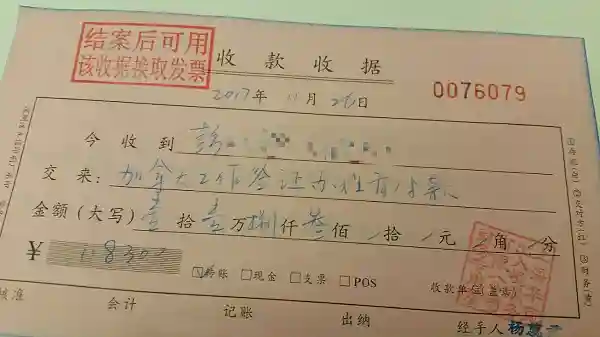 结案后可用
该收据换取发票
收款收据
2017年11月26日
0076079
今收到 彭
交来: 加拿大工作签证办理首付款
金额(大写)壹拾壹万捌仟叁佰/拾/元/角/分
¥ 118300
转账 □现金 □支票 □POS
收款单位(盖章)
核准 会计 记账 出纳 经手人 杨